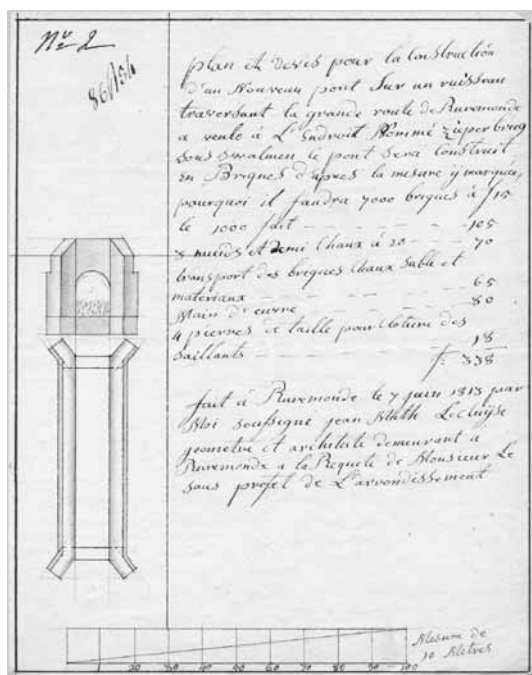 No 2
plan et Devis pour la Construction
d'un Nouveau pont Sur un ruisseau
traversant la grande route de Ruremonde
a venlo à L'Endroit Nommé
sous swalmen le pont sera Construit
en Briques d'après la mesure y marquée,
pourquoi il faudra 7000 briques à f 15
le 1000 fait - - - - 105
muids et demi Chaux à 20 - - 70
transport des briques Chaux Sable et
materiaux - - - - 65
Main d'œuvre - - - - 80
4 pierres de taille pour Cloture des
saillants - - - - 18
f: 338
fait à Ruremonde le 7 juin 1813 par
Moi soussigné jean Math Lecluyse
geometre et architecte demeurant a
Ruremonde a la Requete de Monsieur Le
sous prefet de L'arrondissement
10 20 30 40 50 60 70 80 90 100
Mesure de
10 Metres